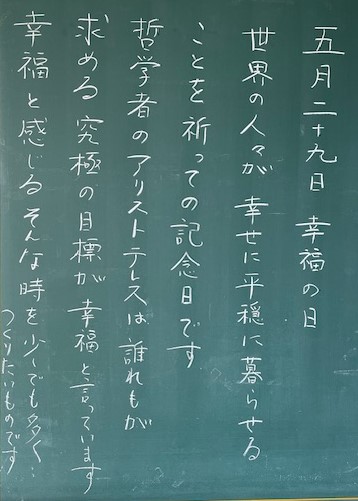 五月二十九日 幸福の日
世界の人々が 幸せに平穏に暮らせる
ことを祈っての記念日です
哲学者のアリストテレスは 誰れもが
求める 究極の目標が 幸福と言っています
幸福と感じる そんな時を少しでも多く
つくりたいものです